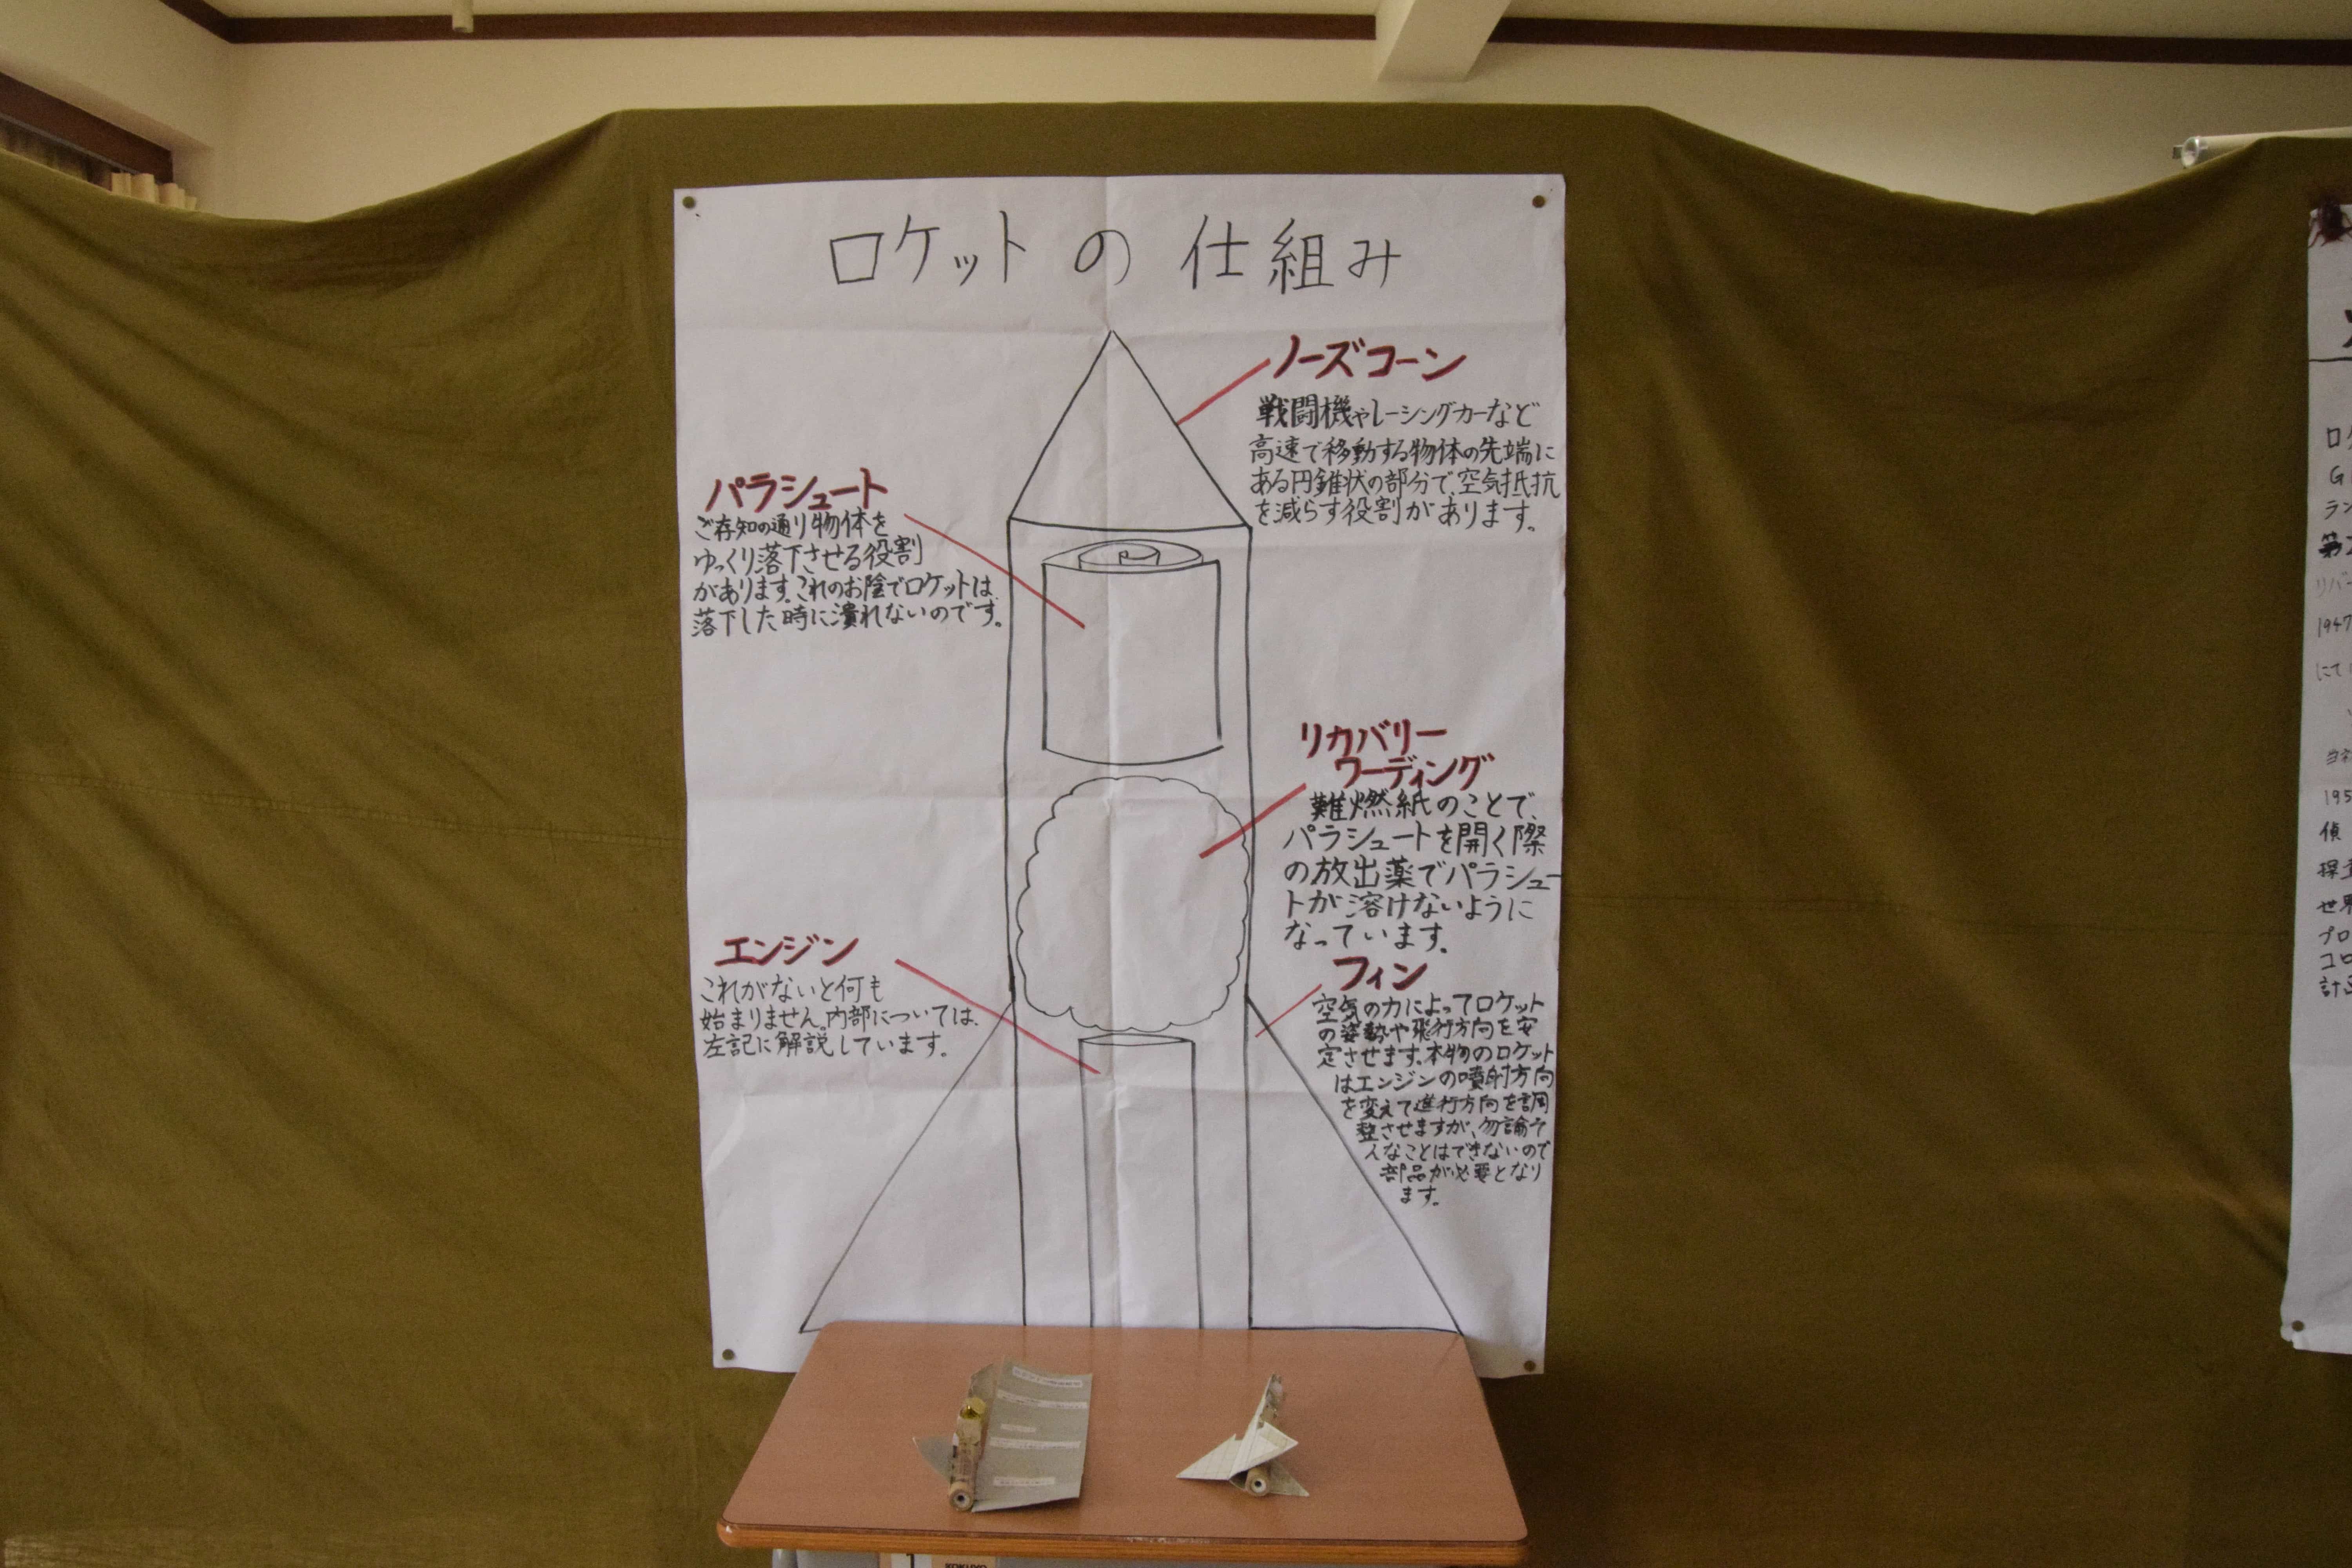 ロケットの仕組み
ノーズコーン
戦闘機やレーシングカーなど
高速で移動する物体の先端に
ある円錐状の部分で、空気抵抗
を減らす役割があります。
パラシュート
ご存知の通り物体を
ゆっくり落下させる役割
があります。これのお陰でロケットは
落下した時に潰れないのです。
リカバリー
ワーディング
難燃紙のことで、
パラシュートを開く際
の放出薬でパラシュー
トが溶けないように
なっています。
エンジン
これがないと何も
始まりません。内部については
左記に解説しています。
フィン
空気の力によってロケット
の姿勢や飛行方向を安
定させます。本物のロケット
はエンジンの噴射方向
を変えて進行方向を調
整させますが、勿論そ
んなことはできないので
部品が必要となり
ます。
ロケ
G
ラン
第2
リバ
1947
にて
当初
195
偵
探査
世界
プロ
コロ
計画
KOKUYO